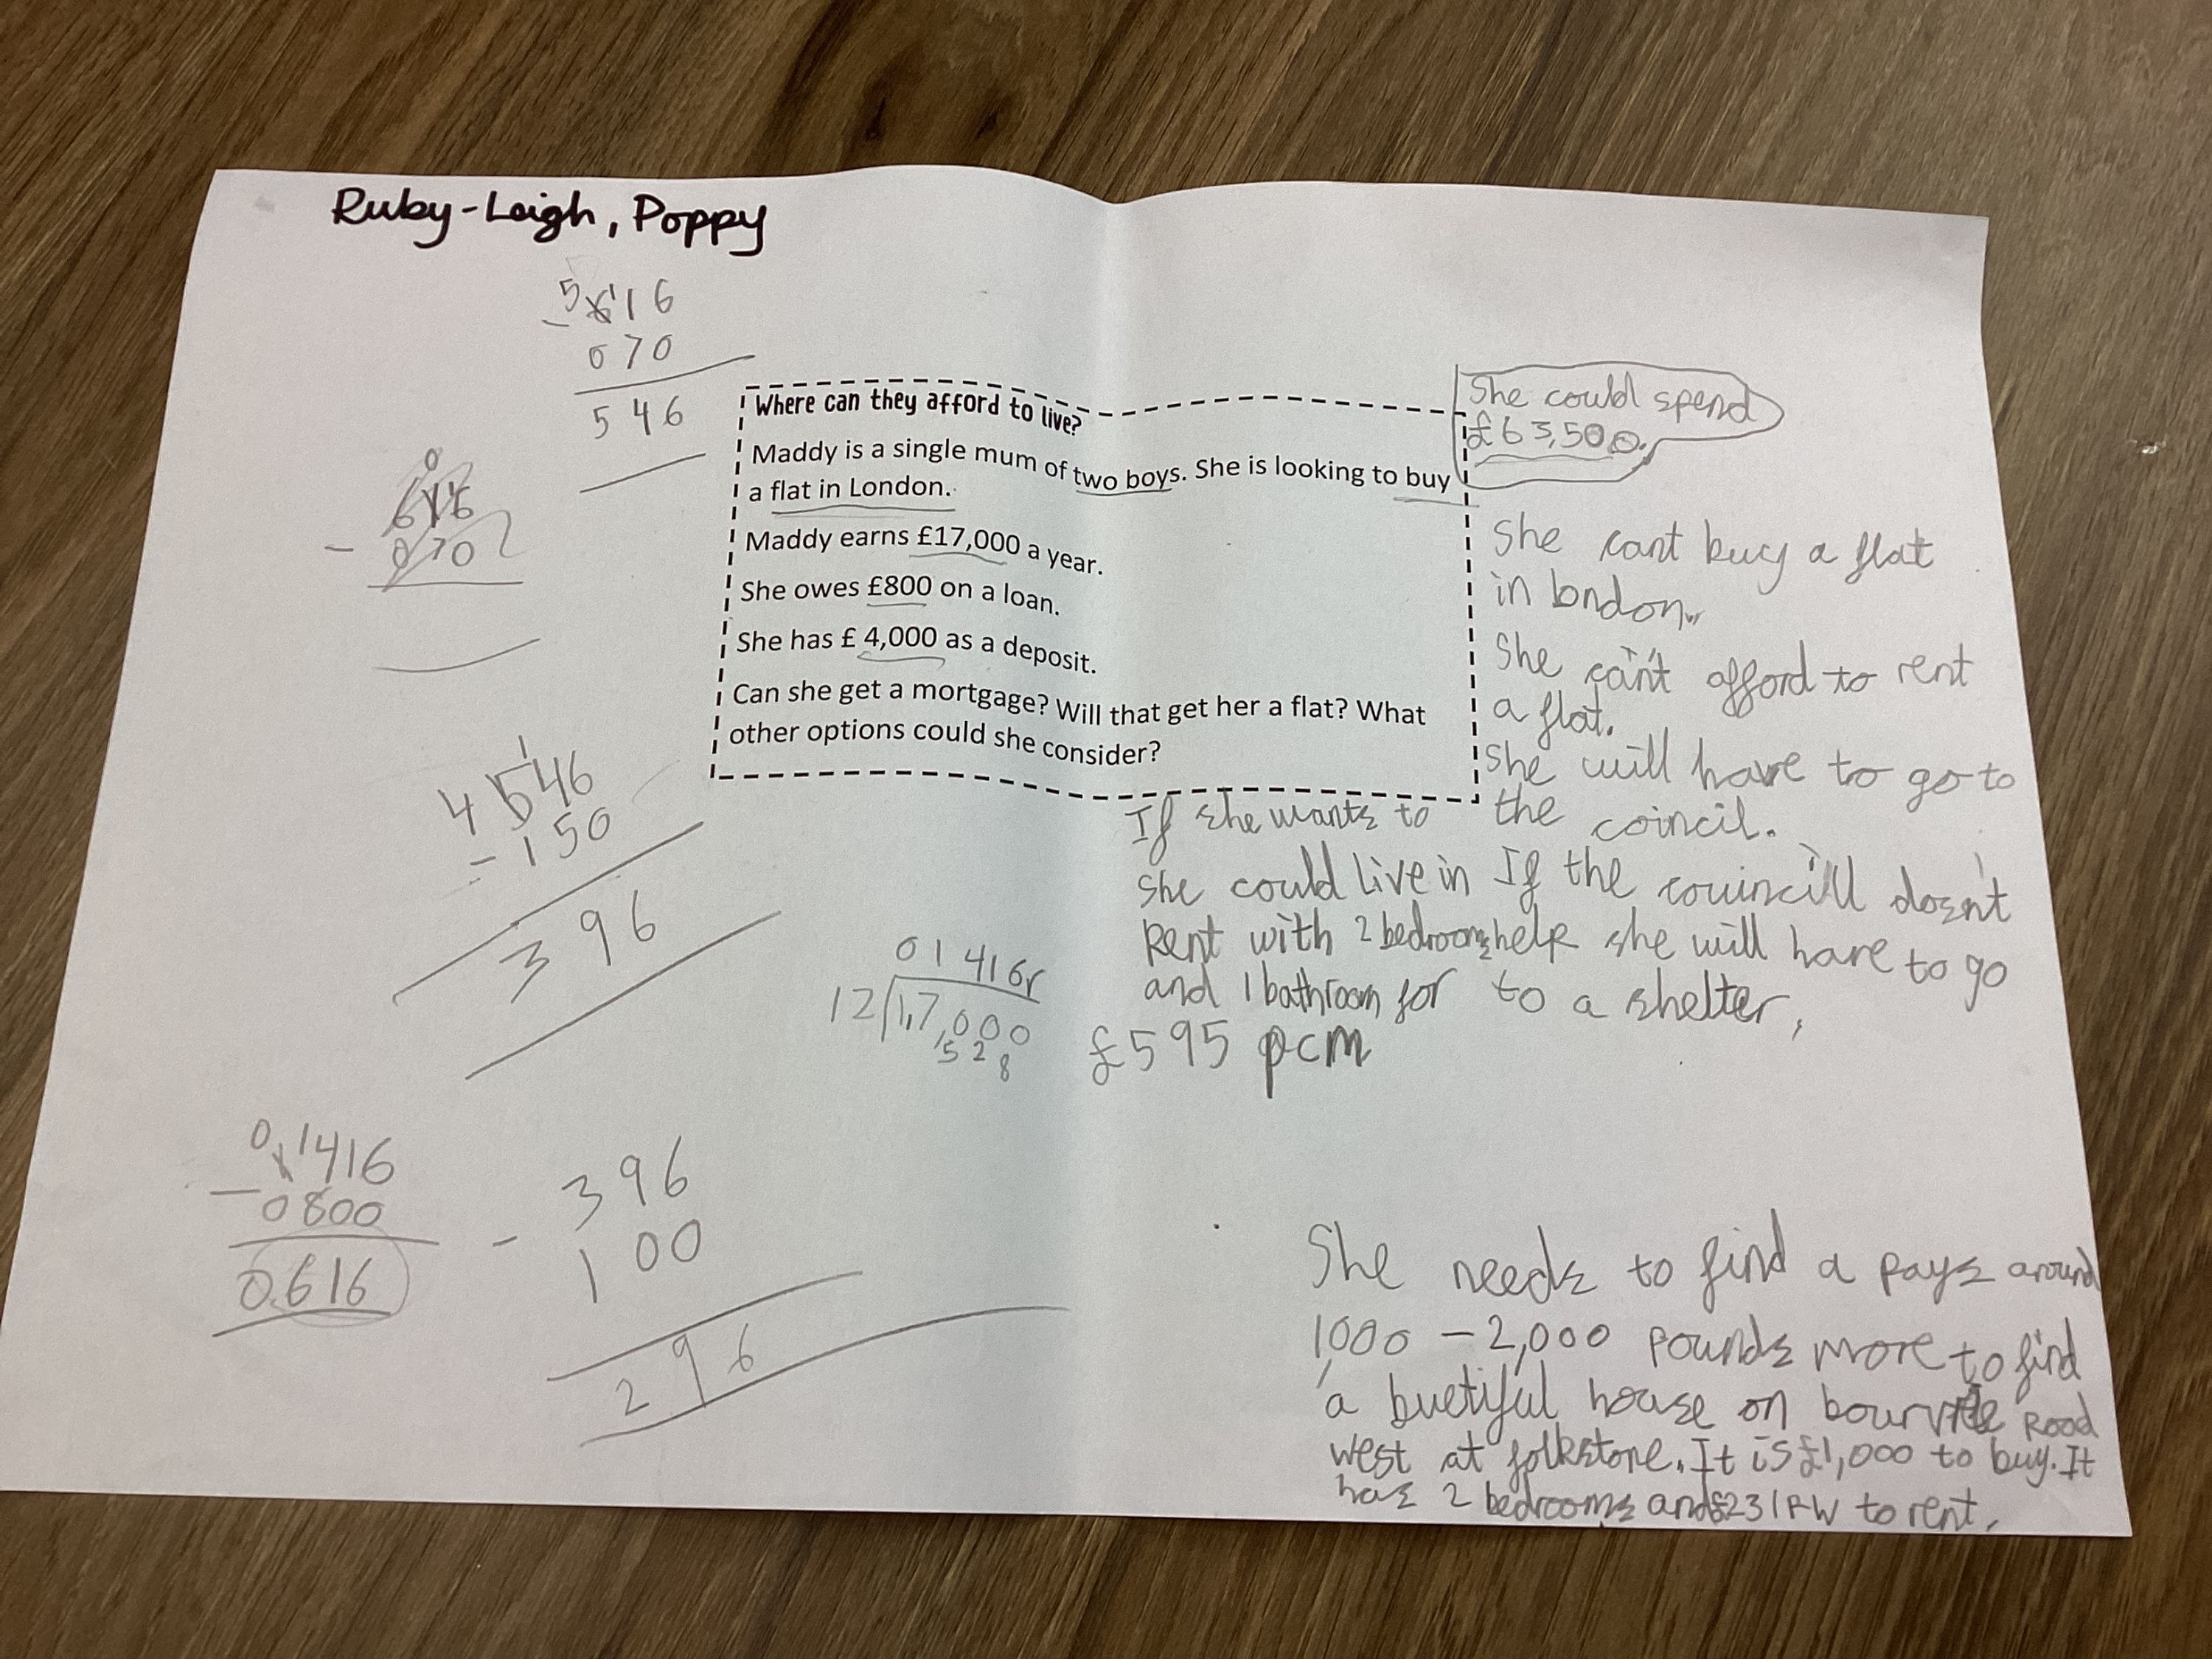 Ruby-Leigh, Poppy
5 6 1 1 6
- 0 7 0
5 4 6
0
6 1 6
- 0 7 0
Where can they afford to live?
Maddy is a single mum of two boys. She is looking to buy
a flat in London.
Maddy earns £17,000 a year.
She owes £800 on a loan.
She has £ 4,000 as a deposit.
Can she get a mortgage? Will that get her a flat? What
other options could she consider?
She could spend
£63,500.
She cant buy a flat
in London.
She can't afford to rent
a flat.
She will have to go to
the coincil.
If the couincill doesn't
help she will have to go
to a shelter,
If she wants to
she could live in
Rent with 2 bedrooms
and 1 bathroom for
£595 pcm
1
4 5 4 6
- 1 5 0
3 9 6
0 1 4 1 6 r
12 1 7,0 0 0
5 2 8
0 1 1 4 1 6
- 0 8 0 0
0 6 1 6
3 9 6
- 1 0 0
2 9 6
She needs to find a pays around
1,000 - 2,000 pounds more to find
a buetiful house on Road
west at folkstone. It is £1,000 to buy. It
has 2 bedrooms and £231 PW to rent.